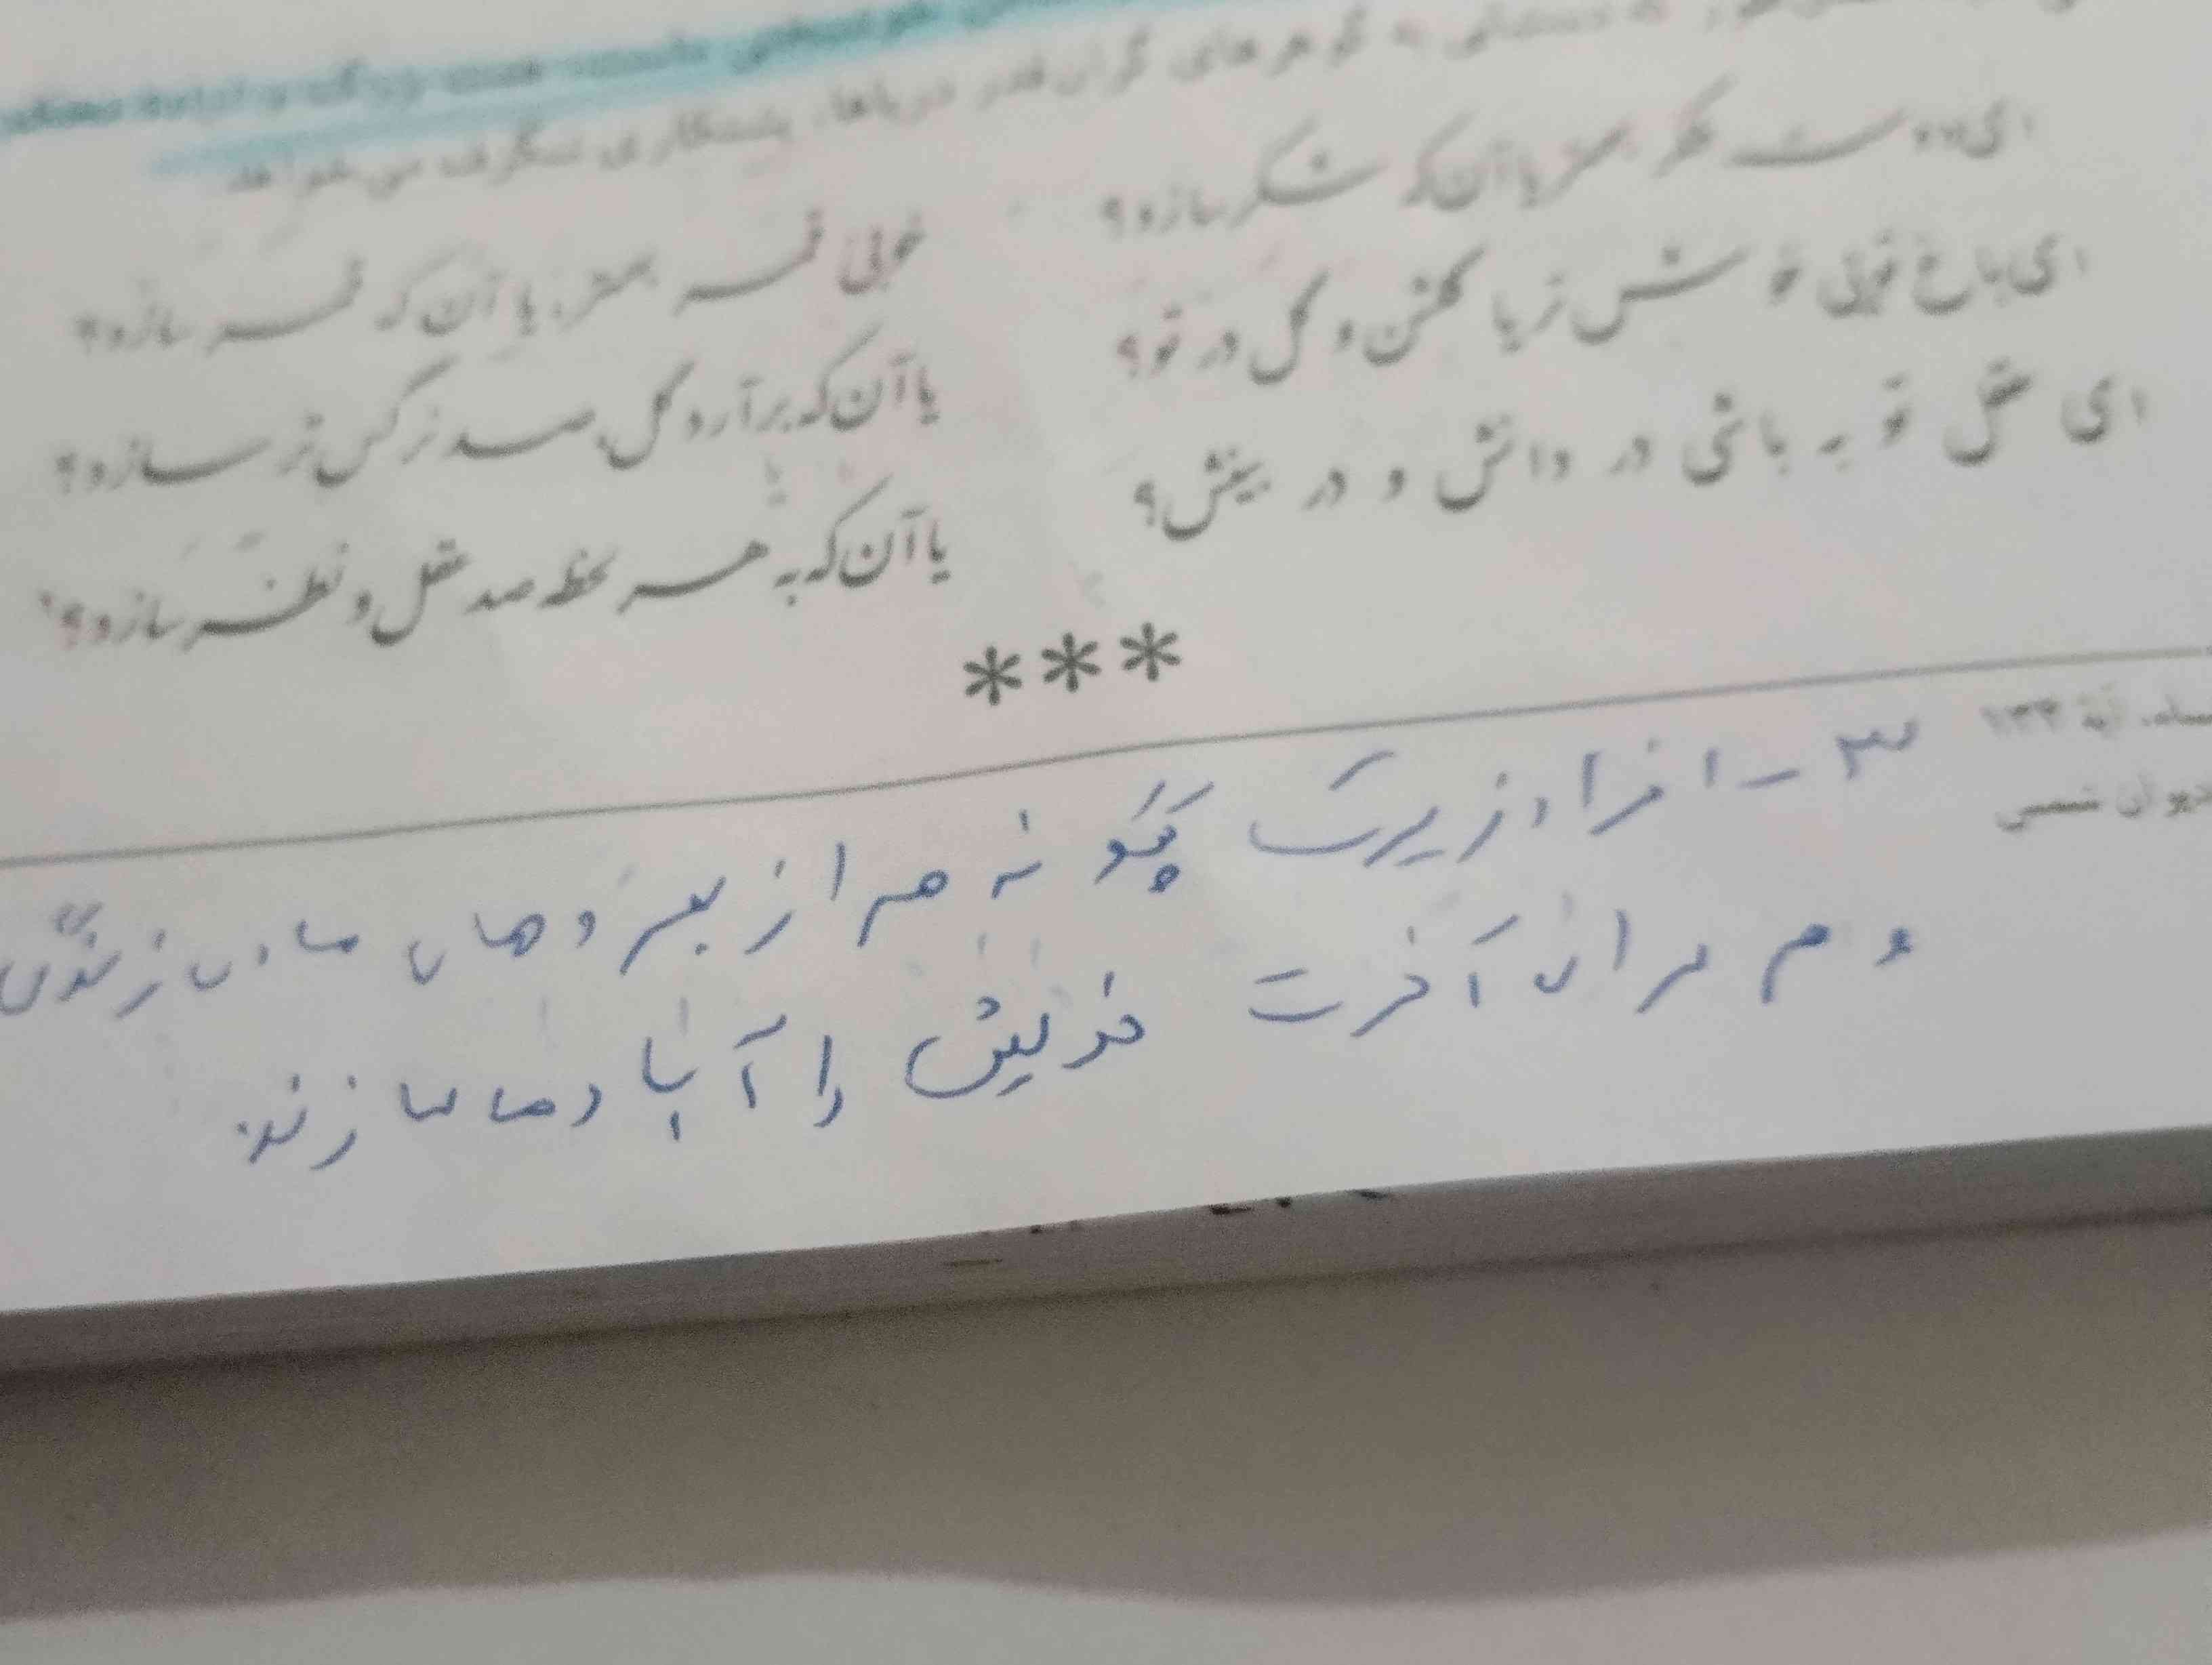 به گوهرهای گران‌قدر دریاها، پشتکاری شگرف می‌خواهد
ای دوست شکر بهتر یا آن که شکر سازد؟
خوبی قمر بهتر، یا آن که قمر سازد؟
ای باغ تویی خوش‌تر یا گلشن و گل در تو؟
یا آن که برآرد گل، صد نرگس تر سازد؟
ای عقل تو به باشی در دانش و در بینش؟
یا آن که به هر لحظه صد عقل و نظر سازد؟
***
آیهٔ ۱۳۴
دیوان شمس
۳- افراد زیرک چگونه هم از بهره‌های مادی زندگی
و هم سرای آخرت خویش را آباد می سازند.